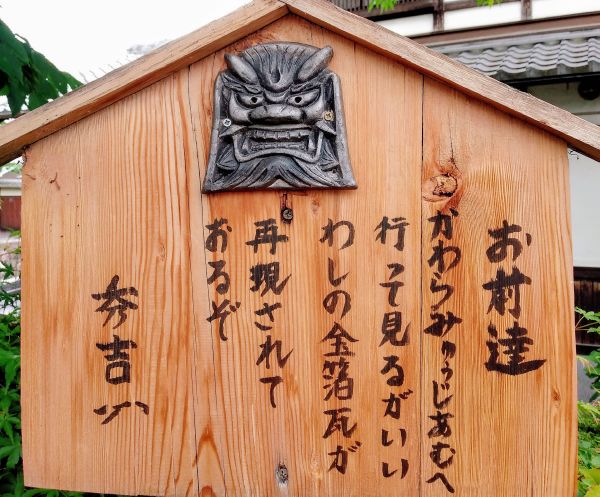 お前達
かわらみゅうじあむへ
行って見るがいい
わしの金箔瓦が
再現されて
おるぞ
秀吉